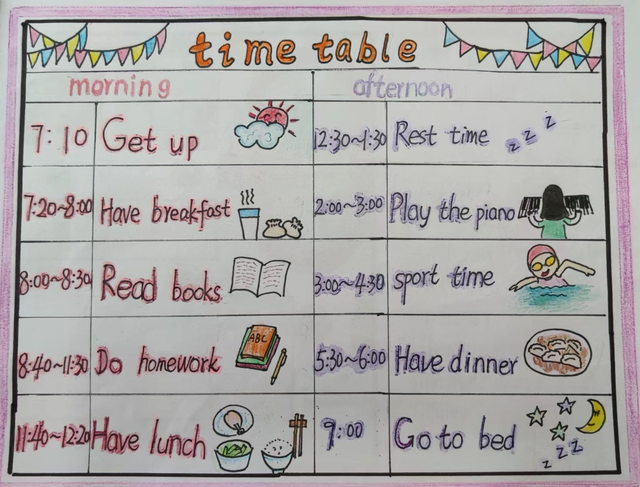 time table
morning afternoon
7:10 Get up 12:30~1:30 Rest time z z z
7:20~8:00 Have breakfast 2:00~3:00 Play the piano
8:00~8:30 Read books 3:00~4:30 sport time
8:40~11:30 Do homework ABC 5:30~6:00 Have dinner
11:40~12:20 Have lunch 9:00 Go to bed z z z